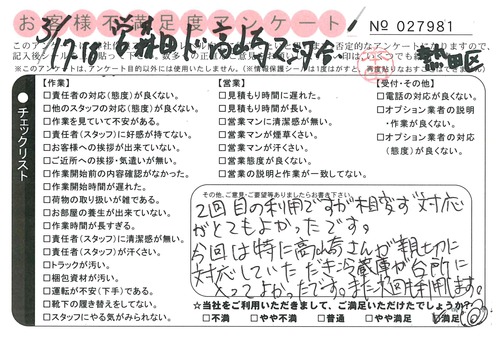 お客様不満足度アンケート
No 027981
【作業】
□責任者の対応(態度)が良くない。
□他のスタッフの対応(態度)が良くない。
□作業を見ていて不安がある。
□責任者(スタッフ)に好感が持てない。
□お客様への挨拶が出来ていない。
□ご近所への挨拶・気遣いが無い。
□作業開始前の内容確認がなかった。
□作業開始時間が遅れた。
□荷物の取り扱いが雑である。
□お部屋の養生が出来ていない。
□作業時間が長すぎる。
□責任者(スタッフ)に清潔感が無い。
□責任者(スタッフ)が汗くさい。
□トラックが汚い。
□梱包資材が汚い。
□運転が不安(下手)である。
□靴下の履き替えをしてない。
□スタッフにやる気がみられない。
【営業】
□見積もり時間に遅れた。
□見積もり時間が長い。
□営業マンに清潔感が無い。
□営業マンが煙草くさい。
□営業マンが汗くさい。
□営業態度が良くない。
□営業の説明と作業が一致してない。
【受付・その他】
□電話の対応が良くない。
□オプション業者の説明
・作業が良くない。
□オプション業者の対応
(態度)が良くない。
チェックリスト
その他、ご意見・ご要望等ありましたらお書き下さい。
2回目の利用ですが相変ず対応
がとてもよかったです。
今回は特に高山奇さんが親切に
対応していただき冷蔵庫が台所に
入ってよかったです。また次回も利用します。
☆当社をご利用いただきまして、ご満足いただけたでしょうか?
□不満 □やや不満 □普通 □やや満足 □満足